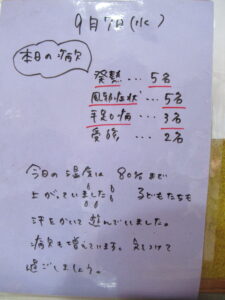 9月7日(水)
本日の病欠
発熱…5名
風邪症状…5名
手足口病…3名
受診…2名
今日の湿度は80%まで
上がっていました 子どもたちも
汗をかいて遊んでいました。
病欠も増えています。気をつけて
過ごしましょう。